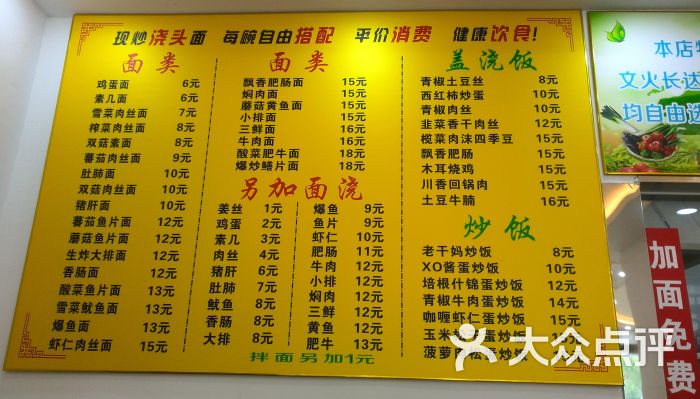 现炒浇头面 每碗自由搭配 平价消费 健康饮食!
面类
鸡蛋面 6元
素几面 6元
雪菜肉丝面 7元
榨菜肉丝面 8元
双菇素面 8元
蕃茄肉丝面 9元
肚肺面 10元
双菇肉丝面 10元
猪肝面 10元
蕃茄鱼片面 12元
蘑菇鱼片面 12元
生炸大排面 12元
香肠面 12元
酸菜鱼片面 13元
雪菜鱿鱼面 13元
爆鱼面 13元
虾仁肉丝面 15元
面类
飘香肥肠面 15元
焖肉面 15元
蘑菇黄鱼面 15元
小排面 15元
三鲜面 16元
牛肉面 16元
酸菜肥牛面 18元
爆炒鳝片面 18元
另加面浇
姜丝 1元
鸡蛋 2元
素几 3元
肉丝 4元
猪肝 6元
肚肺 7元
鱿鱼 8元
香肠 8元
大排 8元
爆鱼 9元
鱼片 9元
虾仁 10元
肥肠 11元
牛肉 12元
小排 12元
焖肉 12元
三鲜 12元
黄鱼 12元
肥牛 13元
拌面另加1元
盖浇饭
青椒土豆丝 8元
西红柿炒蛋 10元
青椒肉丝 10元
韭菜香干肉丝 12元
榄菜肉沫四季豆 15元
飘香肥肠 15元
木耳烧鸡 15元
川香回锅肉 15元
土豆牛腩 16元
炒饭
老干妈炒饭 8元
XO酱蛋炒饭 10元
培根什锦蛋炒饭 12元
青椒牛肉蛋炒饭 14元
咖喱虾仁蛋炒饭 15元
玉米 蛋炒饭
菠萝 松蛋炒饭
本店
文火长达
均自由选
加面免费
大众点评